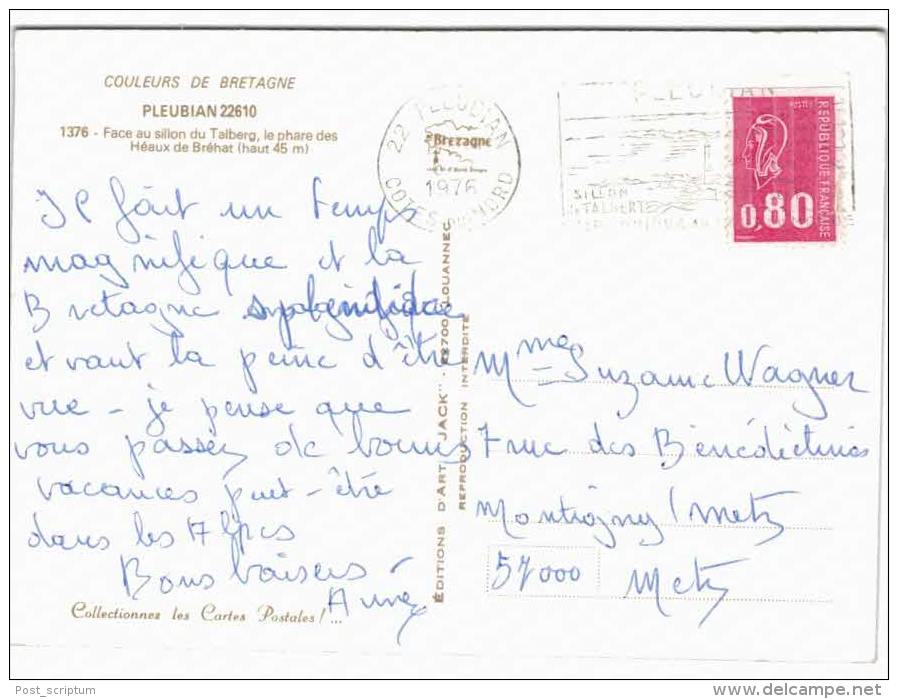 COULEURS DE BRETAGNE
PLEUBIAN 22610
1376 - Face au sillon du Talberg, le phare des
Héaux de Bréhat (haut 45 m)
22 PLEUBIAN
Bretagne
1976
COTES DU NORD
PLEUBIAN
SILLON
TALBERT
POSTES
REPUBLIQUE FRANÇAISE
0,80
Il fait un temps
magnifique et la
Bretagne
et vaut la peine d'être
vue - je pense que
vous passez de bonnes
vacances peut-être
dans les
Bons baisers -
Collectionnez les Cartes Postales !...
ÉDITIONS D'ART "JACK" - LOUANNEC
REPRODUCTION INTERDITE
Mme Suzanne Wagner
7 rue des Bénédictines
Montigny / Metz
57000 Metz
Post_scriptum
delcampe.net